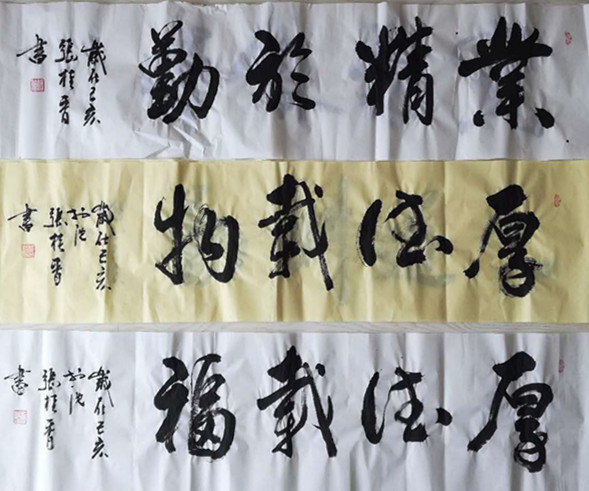 業精於勤
歲在己亥
張桂
書
厚德載物
歲在己亥
張桂
書
厚德載福
歲在己亥
張桂
書